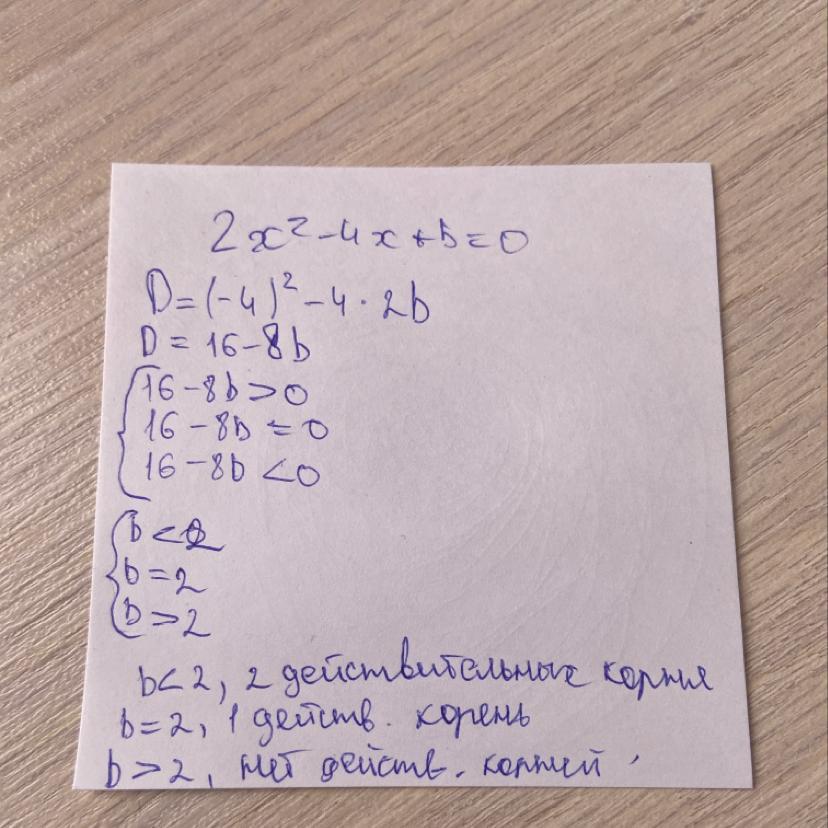 2x² - 4x + b = 0
D = (-4)² - 4 · 2b
D = 16 - 8b
16 - 8b > 0
16 - 8b = 0
16 - 8b < 0
b < 2
b = 2
b > 2
b < 2, 2 действительные корня
b = 2, 1 действ. корень
b > 2, нет действ. корней